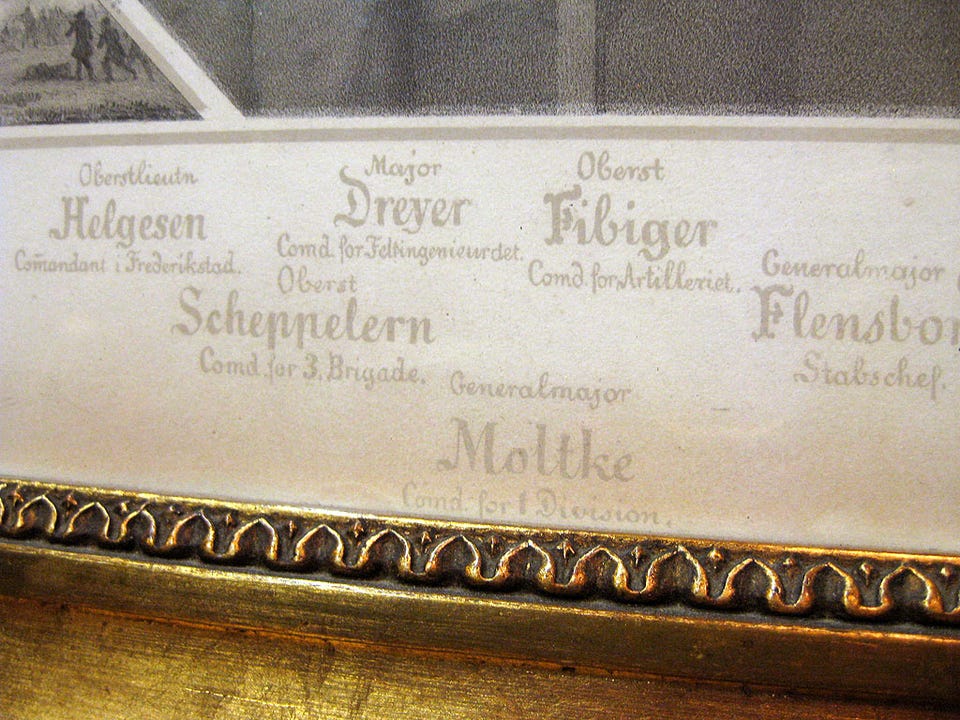 Oberstlieutn
Helgesen
Com̄andant i Frederikstad.
Major
Dreyer
Comd. for Feltingenieurdet.
Oberst
Fibiger
Comd. for Artilleriet.
Oberst
Scheppelern
Comd. for 3. Brigade.
Generalmajor
Flensbor
Stabschef.
Generalmajor
Moltke
Comd. for 1 Division.